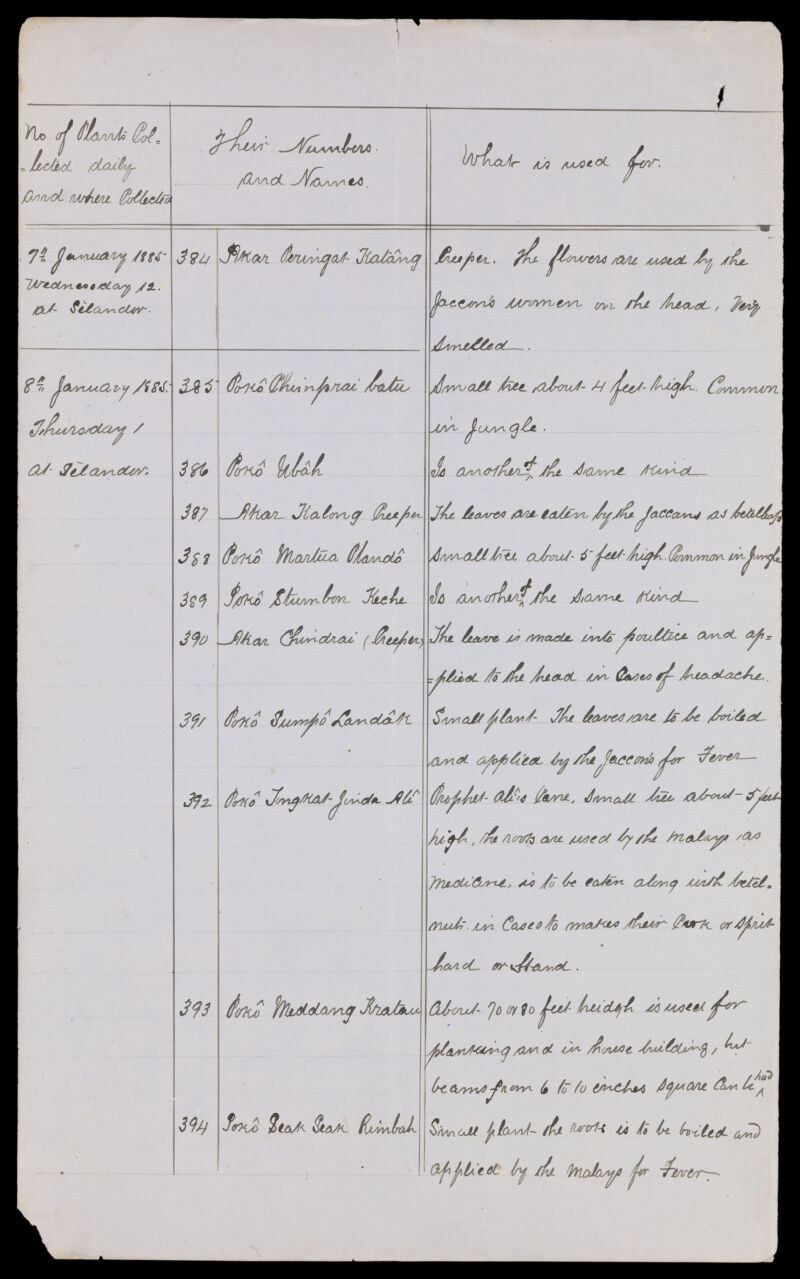 1
No of Plants Col=
=lected daily
and where Collected
Their Numbers.
and Names.
What is used for.
7th January 1885
Wednesday 12.
at Sêlandor.
384 Akar Peringat Katâng
Creeper. The flowers are used by the
Jaccon's women on the head, Very
Smelled.
8th January 1885.
Thursday 1
at Sêlandor.
385 Pokô Chimprai batu
Small tree about 4 feet high. Common
in Jungle.
386 Pokô Ubâh
Is another of the same kind
387 Akar Kalong Creeper
The leaves are eaten by the Jaccans as betelleafs
388 Pokô Martúa Plandô
Small tree about 5 feet high. Common in Jungle
389 Pokô Stumbon Keche
Is another of the same kind
390 Akar Chindrai (Creeper)
The leave is made into poultice and ap=
=plied to the head in Cases of headache.
391 Pokô Sumpô Landâk
Small plant. The leaves are to be boiled
and applied by the Jaccon's for Fever
392 Pokô Tongkat Jinda Alî
Prophet Ali's Cane, Small tree about 5 feet
high, the roots are used by the Malays as
Medicine, is to be eaten along with betel-
nuts in Cases to makes their or Sprit
hard or Stand.
393 Pokô Meddang Kratau
About 70 or 80 feet heidgh is used for
planking and in house building, but
beams from 6 to 10 einches square Can be had
394 Pokô Seak Seak Rimbah
Small plant the roots is to be boiled and
applied by the Malays for Fever.